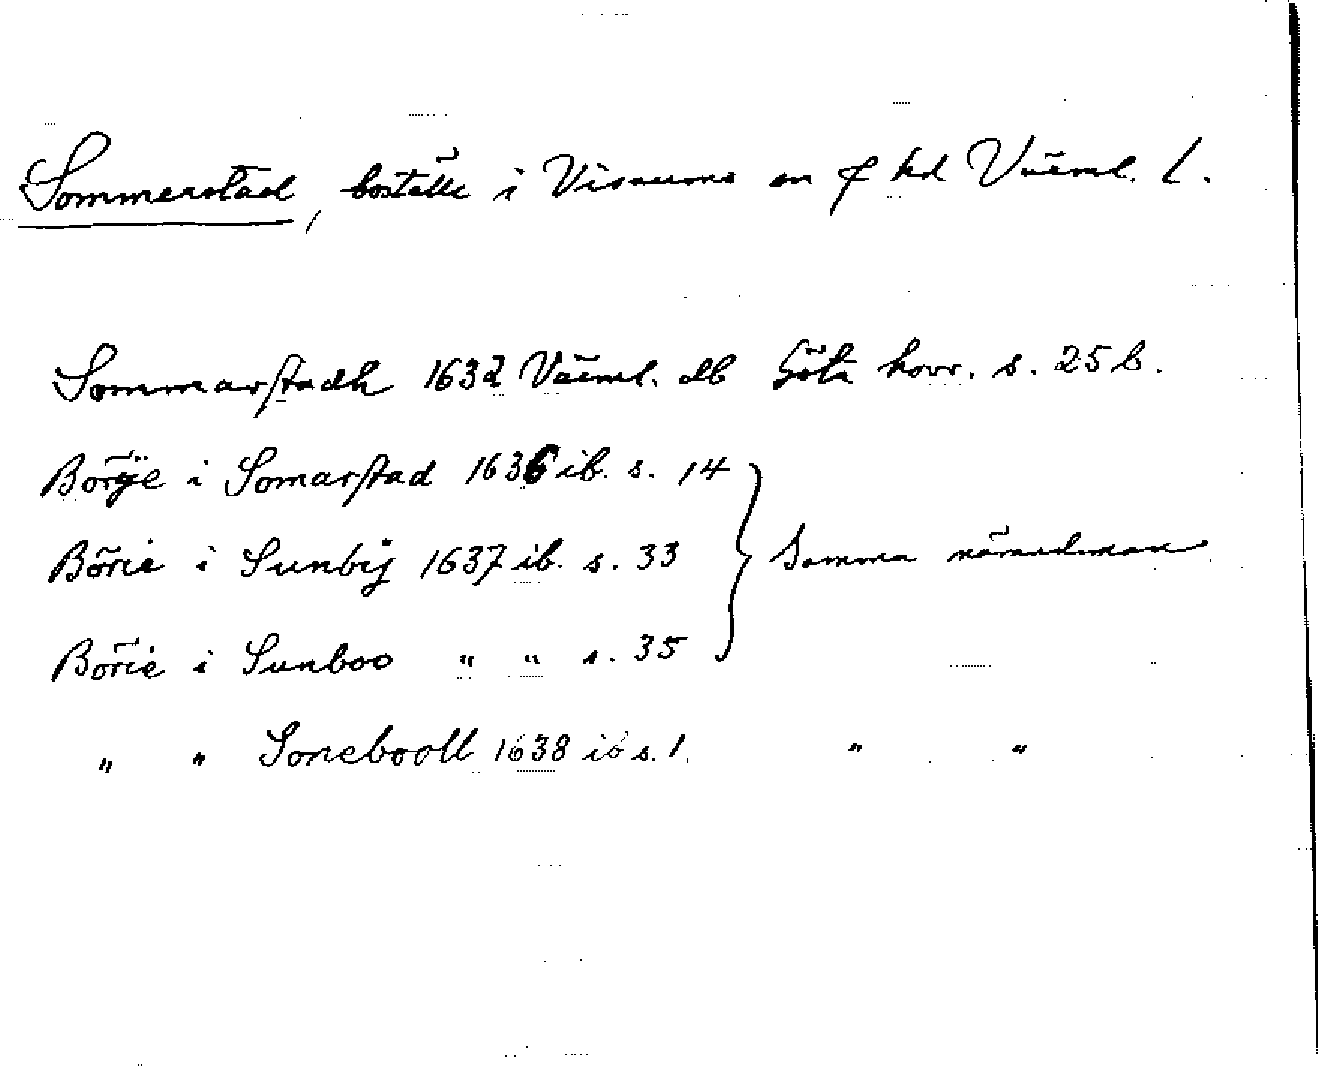 Sommerstad, boställe i Visnums sn o hd Värml. l.
Sommarstadh 1632 Värml. db Göta hovr. s. 25 b.
Börije i Somarstad 1636 ib. s. 14
Börie i Sunbÿ 1637 ib. s. 33 } Samma nämndeman
Börie i Sunboo " " s. 35
" " Sonebooll 1638 ib s. 1. " "